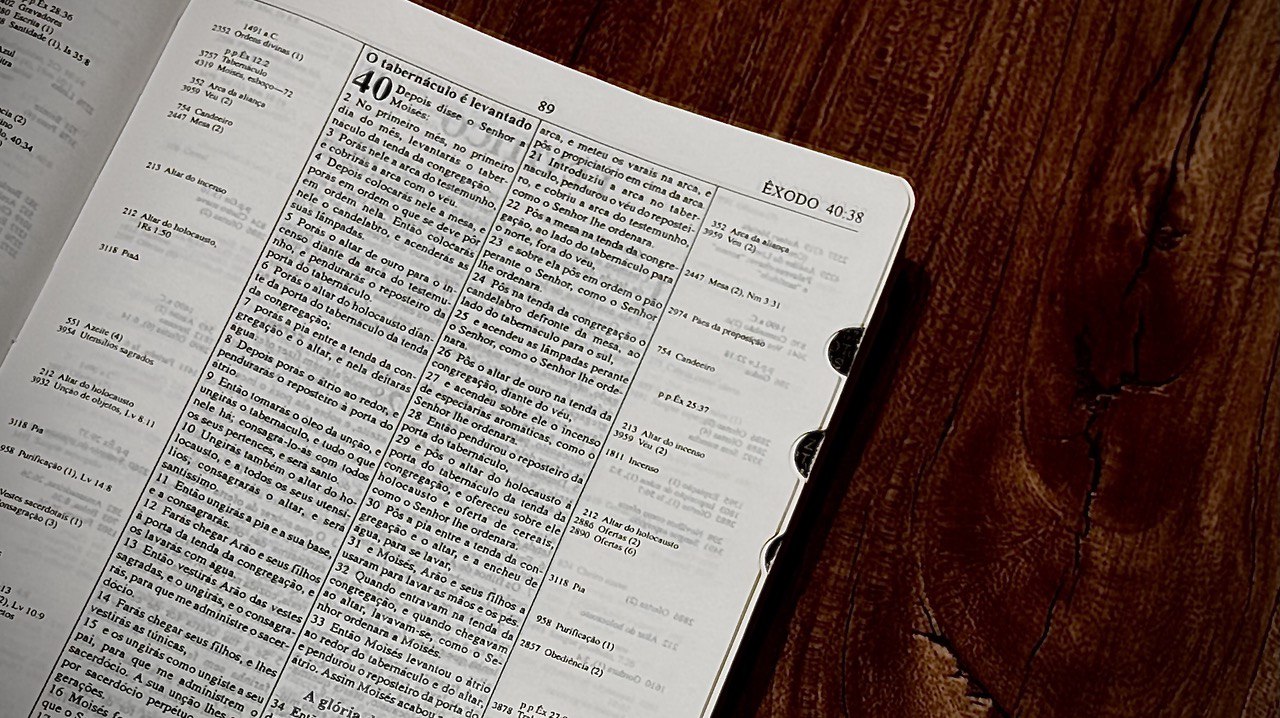 p p Êx 28.36
Gravadores
Escrita (1)
Santidade (1), Is 35.8
1491 a.C.
2352 Ordens divinas (1)
p.p Êx 12:2
3757 Tabernáculo
4319 Moisés, esboço—72
352 Arca da aliança
3959 Véu (2)
754 Candeeiro
2447 Mesa (2)
213 Altar do incenso
212 Altar do holocausto,
1Rs 1.50
3118 Pia
551 Azeite (4)
3954 Utensílios sagrados
212 Altar do holocausto
3932 Unção de objetos, Lv 8 11
3118 Pia
958 Purificação (1), Lv 14.8
Vestes sacerdotais (1)
Consagração (3)
89
ÊXODO 40:38
O tabernáculo é levantado
40 Depois disse o Senhor a
Moisés:
2 No primeiro mês, no primeiro
dia do mês, levantarás o taber-
náculo da tenda da congregação.
3 Porás nele a arca do testemunho,
e cobrirás a arca com o véu.
4 Depois colocarás nele a mesa, e
porás em ordem o que se deve pôr
em ordem nela. Então colocarás
nele o candelabro, e acenderás as
suas lâmpadas.
5 Porás o altar de ouro para o in-
censo diante da arca do testemu-
nho, e pendurarás o reposteiro da
porta do tabernáculo.
6 Porás o altar do holocausto dian-
te da porta do tabernáculo da tenda
da congregação;
7 porás a pia entre a tenda da con-
gregação e o altar, e nela deitarás
água.
8 Depois porás o átrio ao redor, e
pendurarás o reposteiro à porta do
átrio.
9 Então tomarás o óleo da unção, e
ungirás o tabernáculo, e tudo o que
nele há; consagra-lo-ás com todos
os seus pertences, e será santo.
10 Ungirás também o altar do ho-
locausto, e a todos os seus utensí-
lios; consagrarás o altar, e será
santíssimo.
11 Então ungirás a pia e a sua base,
e a consagrarás.
12 Farás chegar Arão e seus filhos
à porta da tenda da congregação, e
os lavarás com água.
13 Então vestirás Arão das vestes
sagradas, e o ungirás, e o consagra-
rás, para que me administre o sacer-
dócio.
14 Farás chegar seus filhos, e lhes
vestirás as túnicas,
15 e os ungirás como ungiste a seu
pai, para que me administrem o
sacerdócio. A sua unção lhes
por sacerdócio perpétuo
gerações.
16 Moisés
que o
arca, e meteu os varais na arca, e
pôs o propiciatório em cima da arca
21 Introduziu a arca no taber-
náculo, pendurou o véu do repostei-
ro, e cobriu a arca do testemunho,
como o Senhor lhe ordenara.
22 Pôs a mesa na tenda da congre-
gação, ao lado do tabernáculo para
o norte, fora do véu,
23 e sobre ela pôs em ordem o pão
perante o Senhor, como o Senhor
lhe ordenara.
24 Pôs na tenda da congregação o
candelabro defronte da mesa, ao
lado do tabernáculo para o sul,
25 e acendeu as lâmpadas perante
o Senhor, como o Senhor lhe orde-
nara.
26 Pôs o altar de ouro na tenda da
congregação, diante do véu,
27 e acendeu sobre ele o incenso
de especiarias aromáticas, como o
Senhor lhe ordenara.
28 Então pendurou o reposteiro da
porta do tabernáculo,
29 e pôs o altar do holocausto à
porta do tabernáculo da tenda da
congregação, e ofereceu sobre ele
holocausto e oferta de cereais,
como o Senhor lhe ordenara.
30 Pôs a pia entre a tenda da con-
gregação e o altar, e a encheu de
água, para se lavar,
31 e Moisés, Arão e seus filhos a
usaram para lavar as mãos e os pés.
32 Quando entravam na tenda da
congregação, e quando chegavam
ao altar, lavavam-se, como o Se-
nhor ordenara a Moisés.
33 Então Moisés levantou o átrio
ao redor do tabernáculo e do altar,
e pendurou o reposteiro da porta do
átrio. Assim Moisés acabou
A glória
34
352 Arca da aliança
3959 Véu (2)
2447 Mesa (2), Nm 3 31
2974 Pães da preposição
754 Candeeiro
p p Êx 25.37
213 Altar do incenso
3959 Véu (2)
1811 Incenso
212 Altar do holocausto
2886 Ofertas (2)
2890 Ofertas (6)
3118 Pia
958 Purificação (1)
2857 Obediência (2)
p p Êx 27
3878